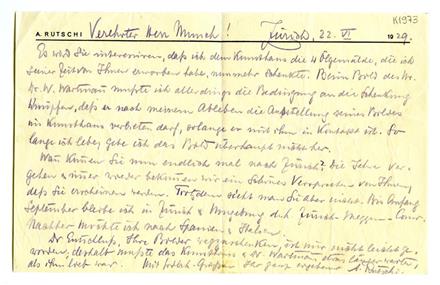 K1973
A. RUTSCHI Verehrter Herr Munch! Zürich, 22. VI 1929.
Es wird Sie interessieren, daß ich dem Kunsthaus die 4 Ölgemälde, die ich
seiner Zeit von Ihnen erworben habe, nunmehr schenkte. Beim Bild des Hr.
Dr. W. Wartmann mußte ich allerdings die Bedingung an die Schenkung
knüpfen, daß er nach meinem Ableben die Ausstellung seines Bildes
im Kunsthaus verbieten darf, solange er mit ihm in Kontakt ist. So
lange ich lebe, gebe ich das Bild überhaupt nicht her.
Wann kommen Sie nun endlich mal nach Zürich? Die Jahre ver-
gehen & immer wieder bekommen wir ein schönes Versprechen von Ihnen,
daß Sie erscheinen werden. Trotzdem sieht man Sie aber nicht. Bis Anfang
September bleibe ich in Zürich & Umgebung d.h. Zürich-Meggen-
Nachher möchte ich nach Spanien & Italien.
Der Entschluß, Ihre Bilder wegzuschenken, ist mir nicht leicht ge-
worden, deshalb mußte das Kunsthaus & Dr. Wartmann etwas länger warten,
als ihm lieb war. Mit herzlich. Grüßen Ihr ganz ergebener A. Rütschi.